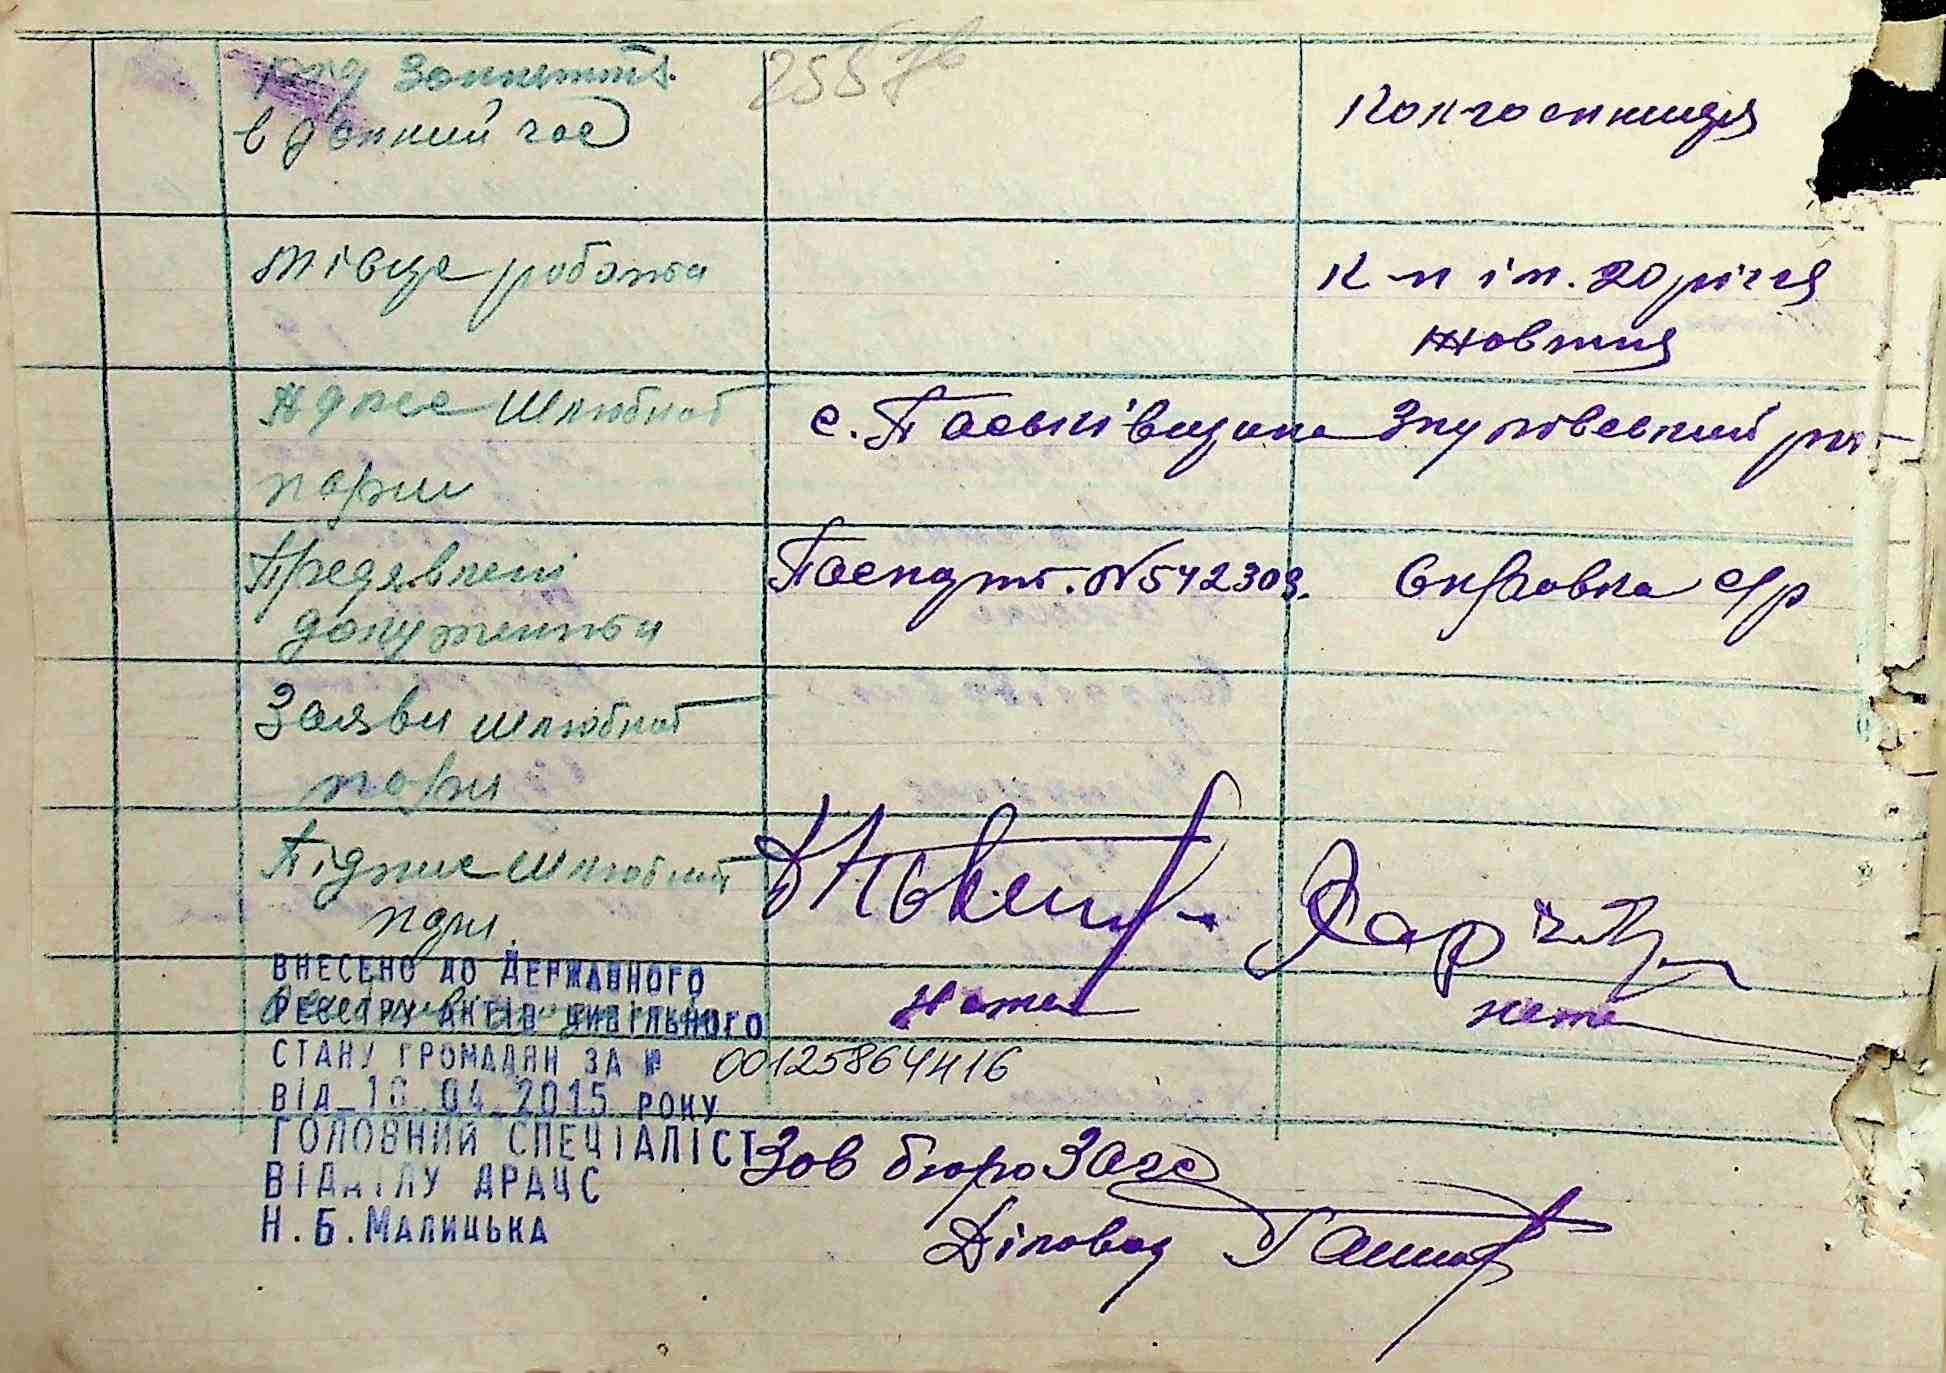 25576
Рід заняття
в даний час
Колгоспниця
Місце роботи
К-п ім. 20 річчя
Жовтня
Адрес шлюбної
пари
с. Паськівщина Згурівський рай
Предявлені
документи
Паспорт. №542309.
Справка с/р
Заяви шлюбної
пари
Підпис шлюбної
пари
нема
нема
ВНЕСЕНО ДО ДЕРЖАВНОГО
РЕЄСТРУ АКТІВ ЦИВІЛЬНОГО
СТАНУ ГРОМАДЯН ЗА № 00125864416
ВІД 16.04.2015 РОКУ
ГОЛОВНИЙ СПЕЦІАЛІСТ
ВІДДІЛУ ДРАЦС
Н.Б.МАЛИЦЬКА
Зав бюро Загс
Діловод